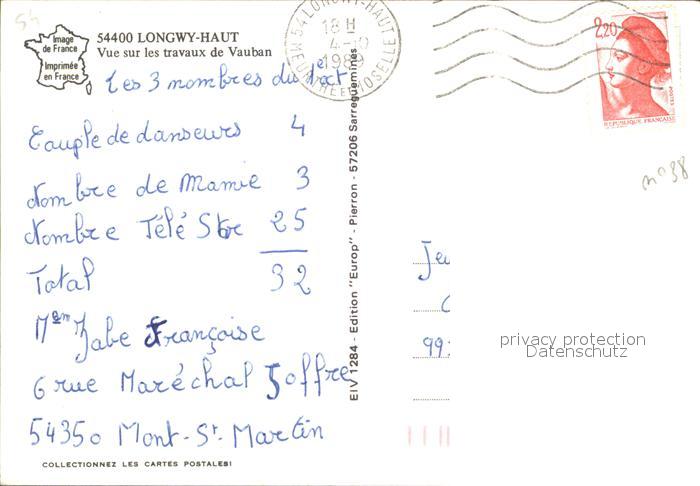 54
Image
de France
Imprimée
en France
54400 LONGWY-HAUT
Vue sur les travaux de Vauban
Les 3 nombres du
Eauple de danseurs 4
Nombre de Mamie 3
Nombre Télé Star 25
Total 32
Mme Zabe Françoise
6 rue Maréchal Joffre
54350 Mont-St-Martin
COLLECTIONNEZ LES CARTES POSTALES!
EIV 1284 - Edition "Europ" - Pierron - 57206 Sarreguemines
54 LONGWY-HAUT
18 H
1989
MEURTHE ET MOSELLE
2,20
POSTES
REPUBLIQUE FRANCAISE
n°38
Je
99
privacy protection
Datenschutz